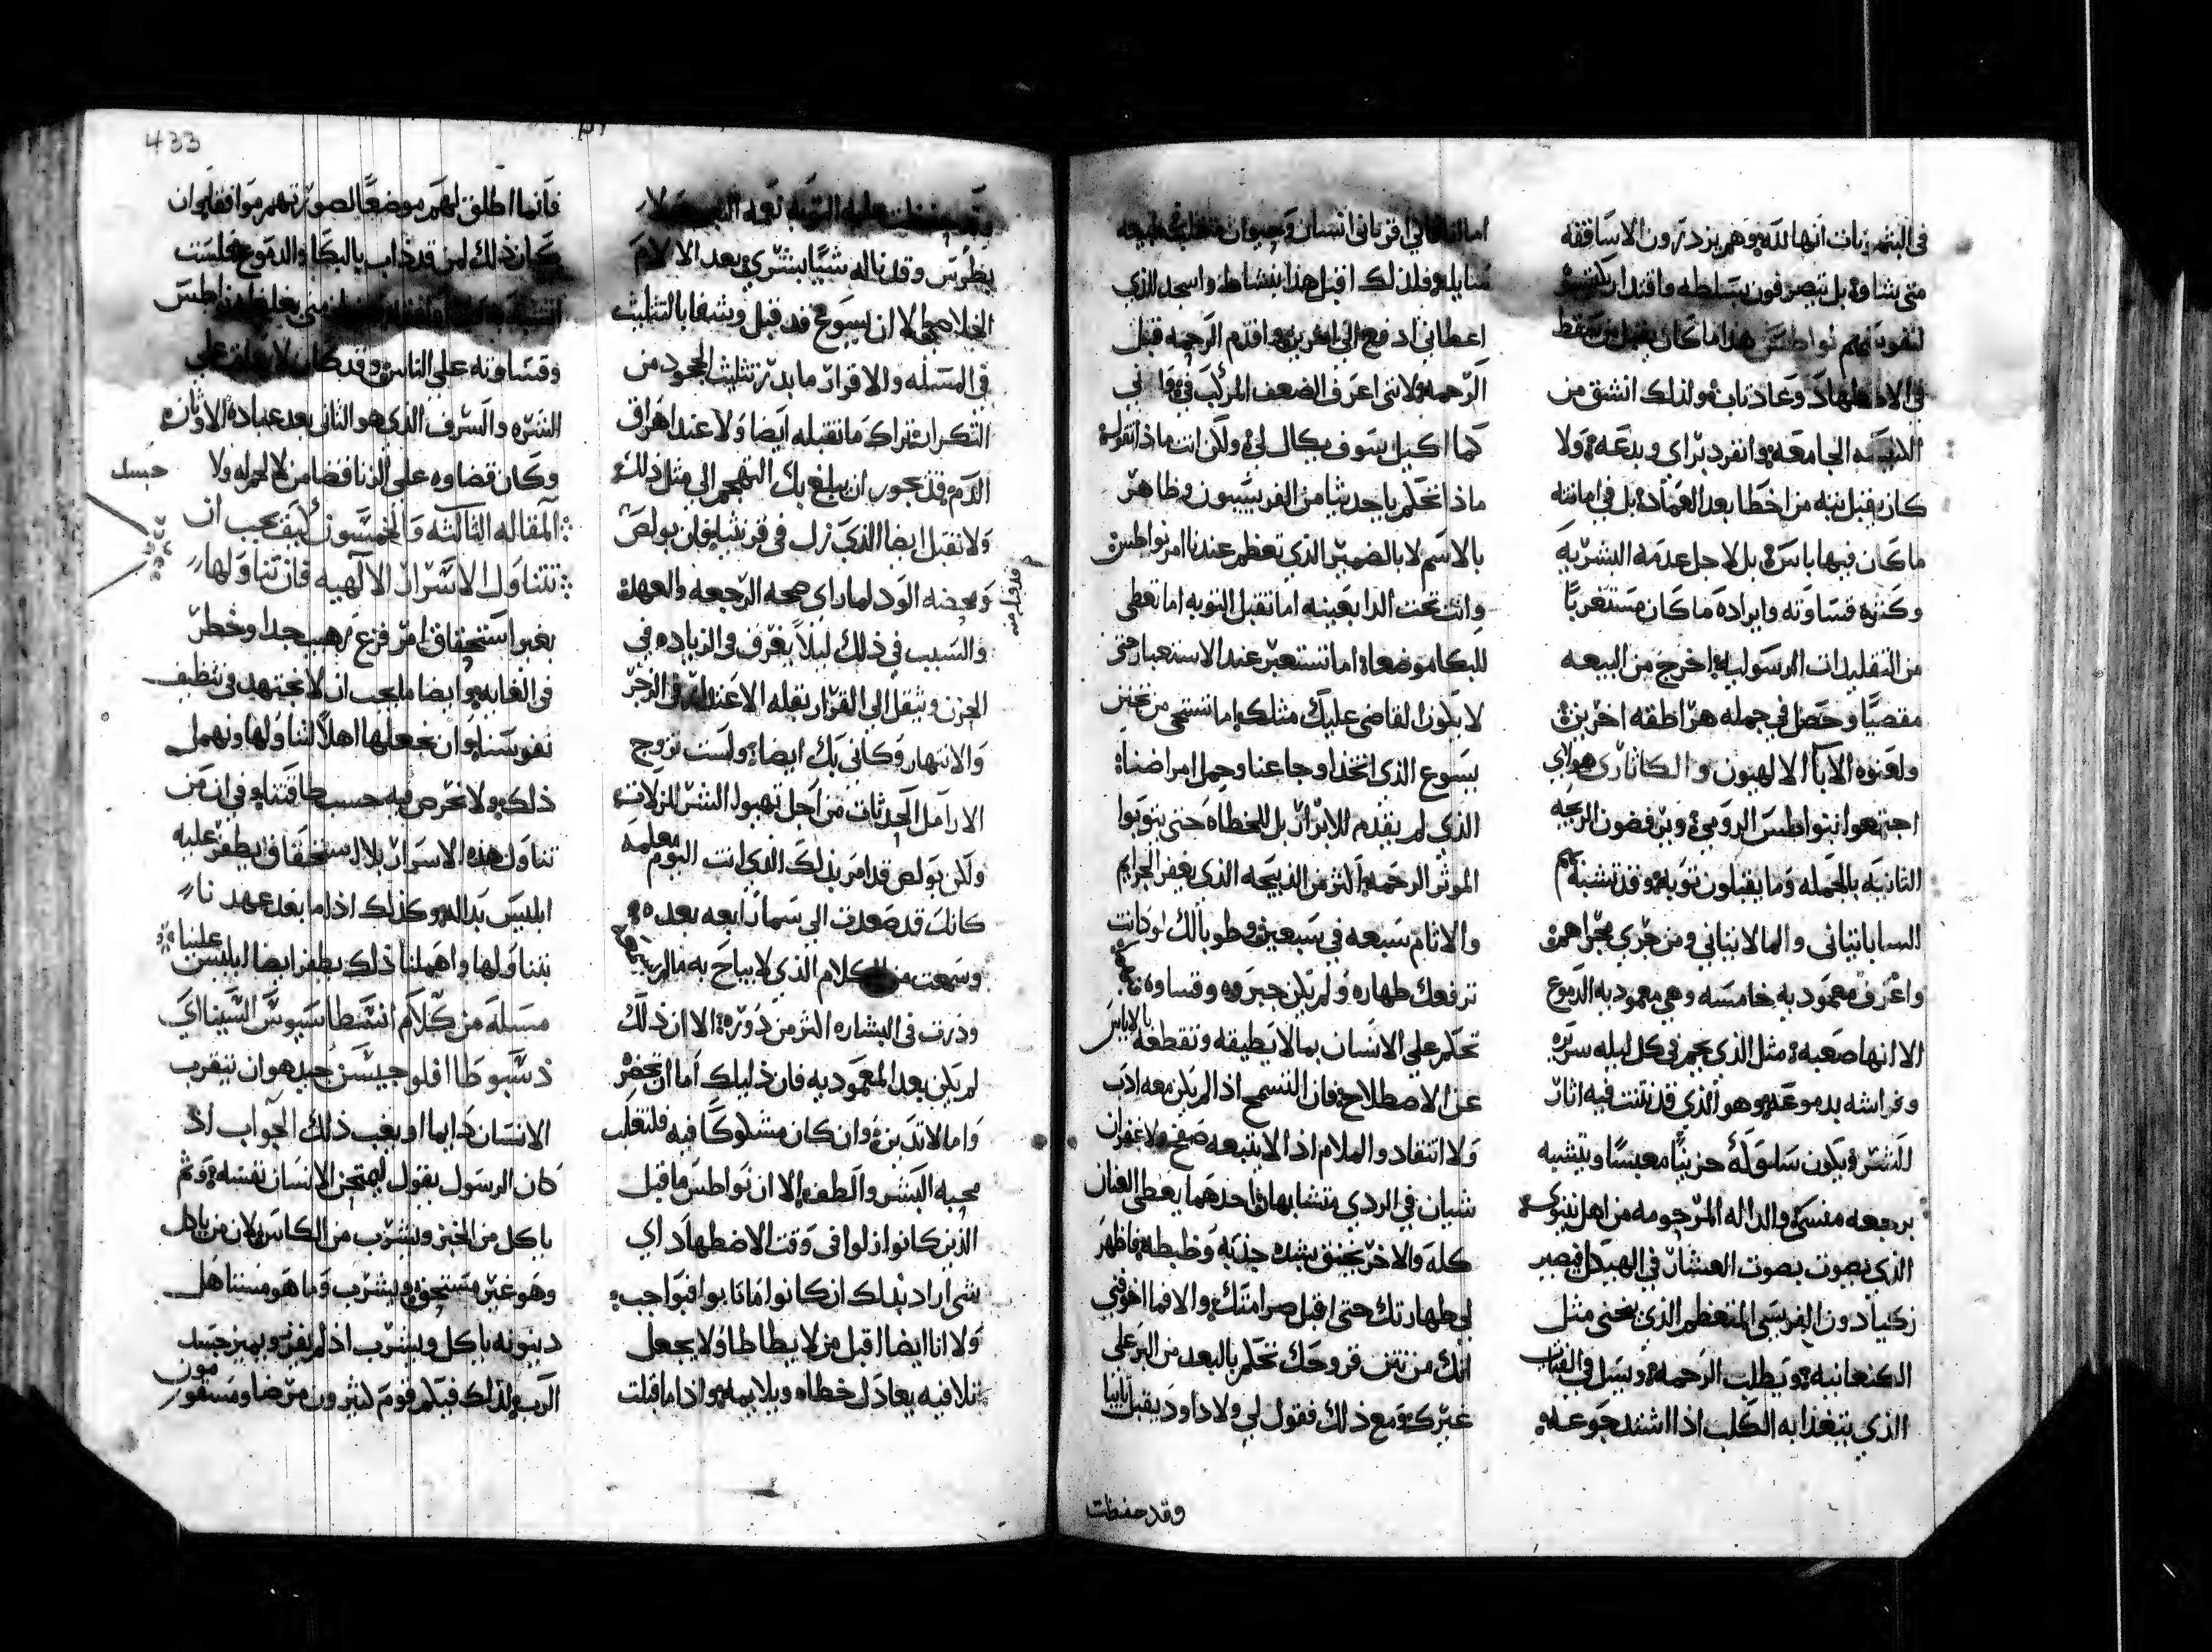 في البشريات انها لله وهم يزدرون الاساقفه
متي يشاوا بل يتصرفون بسلطه واقتدار
لتقويتهم نواطس هذا ما كان يقبل من سقط
في الاضطهاد وعاد تاب ولذلك انشق من
الجامعه وانفرد براي وبدعه ولا
كان يقبل منه من اخطا بعد العماده بل في امانته
ما كان فيها باس بل لاجل عدمه البشريه
وكثره قساوته وايراده ما كان مستغربا
من التقليدات الرسوليه اخرج من البيعه
مقصيا وحصل في جمله هراطقه اخرين
ولعنوه الابا الالهيون والكاثاري هواي
اجتمعوا نواطس الرومي ويرفضون الزيجه
الثانيه بالجمله وما يقبلون توبه وقد تشبه بهم
الساباتياني والمالانياني ومن جري مجراهم
واعرف معموديه خامسه وهي معموديه الدموع
الا انها صعبه مثل الذي يحم في كل ليله سريره
وفراشه بدموعه وهو الذي قد نتنت فيه اثار
للشر ويكون سلوكه حزينا معبسا ويتشبه
برجعه منسي والداله المرحومه من اهل نينوي
الذي يصوت بصوت العشار في الهيكل فيصير
زكيا دون الفريسي المتعظم الذي ينحني مثل
الكنعانيه ويطلب الرحمه ويسل في الفتات
الذي يتغذا به الكلب اذا اشتد جوعه
اما انا فاني اقر باني انسان وحيوان
مايله فلذلك اقبل هذا بنشاط واسجد للذي
اعطاني ادفع الي اخرين واقدم الرحمه قبل
الرحمه لانني اعرف الضعف المركب في واني
كما اكيل سوف يكال لي ولكن انت ماذا تقول
ماذا تحكم يا جديثا من الفريسيون وظاهر
بالاسم لا بالضمير الذي تعظم عندنا امر نواطس
وانت تحت الدا بعينه اما تقبل التوبه اما تعطي
للبكا موضعا اما تستعبر عند الاستعبار حتي
لا يكون القاضي عليك مثلك اما تستحي من تحنن
يسوع الذي اتخذ اوجاعنا وحمل امراضنا
الذي لم يقدم للابرار بل للخطاه حتي يتوبوا
الموثر الرحمه اكثر من الذبيحه الذي يغفر الجرايم
والاثام سبعه في سبعين وطوباك لو كانت
ترفعك طهاره ولم يكن جبروه وقساوه
تحكم علي الانسان بما لا يطيقه وتقطعه بالاياس
عن الاصطلاح فان التسمح اذا لم يكن معه ادب
ولا انتقاد والملام اذا لا يتبعه صفح ولا غفران
شيان في الردي متشابهان واحدهما يعطي العنان
كله والاخر يخنق بشده جذبه وظبطه فاظهر
لي طهارتك حتي اقبل صرامتك والا فما اخوفني
انك من نتن قروحك تحكم بالبعد من البر علي
غيرك ومع ذلك فقول لي ولا داود يقبل تايبا
وقد حفظت
وقد حفظت عليه التوبه نعمه النبوه ولا
بطرس وقد ناله شيا بشري بعد الالام
الخلاصيه الا ان يسوع قد قبل وشفا بالتثليث
في المسله والاقرار ما بدر تثليث الجحود من
التكرار تراك ما تقبله ايضا ولا عند اهراق
الدم فقد يجوز ان يبلغ بك التهجم الي مثل ذلك
ولا تقبل ايضا الذي زل في قرنثيه فان بولص
ومحضه الود لما راي صحه الرجعه والعهده
والسبب في ذلك ليلا يغرف في الزياده في
الحزن ويثقل الي القرار بثقله الاعتدال في الزجر
والانتهار وكاني بك ايضا ولست تزوج
الارامل الحدثات من اجل تهبول الشر للزلات
ولكن بولص قد امر بذلك الذي انت اليوم معلمه
كانك قد صعدت الي سما رابعه بعده
وسمعت من الكلام الذي لا يباح به ما لم
ودرت في البشاره اكثر من دوره الا ان ذلك
لم يكن بعد المعموديه فان ذليلك اما ان تحضر
واما لا تدين وان كان مشكوكا فيه فلتغلب
محبه البشر والطف الا ان نواطس ما قبل
الذين كانوا زلوا في وقت الاضطهاد اي
شي اراد بذلك ان كانوا ما تابوا فبواجب
ولا انا ايضا اقبل من لا يطاطا ولا يجعل
تلافيه يعادل خطاه ويلايمه واذا ما قبلت
قد اقبل منه
433
فانما اطلق لهم موضعا لصورتهم موافقا وان
كان ذلك لمن قد ذاب بالبكا والدموع فلست
نواطس
وقساوته علي الناس وقد كان لا يعاقب علي
الشره والسرف الذي هو الثاني بعد عباده الاوثان
وكان قضاوه علي الزنا قضا من لا لحم له ولا
جسد
المقاله الثالثه والخمسون كيف يجب ان
نتناول الاسرار الالهيه فان تناولها
بغير استحقاق امر فزع رهيب جدا وخطر
في الغايه وايضا ما يجب ان لا نجتهد في تنظيف
نفوسنا وان نجعلها اهلا لتناولها ونهمل
ذلك ولا نحرص فيه حسب طاقتنا وفي ان من
تناول هذه الاسرار بلا استحقاق يظفر عليه
ابليس بداله وكذلك اذا ما بعد عهدنا
بتناولها واهملنا ذلك يظفر ايضا ابليس علينا
مسله من كلام انسطاسيوس السيناي
الانسان دايما او يغب ذلك الجواب اذ
كان الرسول يقول ليمتحن الانسان نفسه وثم
ياكل من الخبز ويشرب من الكاس لان من ياكل
وهو غير مستحق ويشرب وما هو مستاهل
دينونه ياكل ويشرب اذ لم يفرز ويميز جسد
الرب ولذلك فيكم قوم كثيرون مرضا ومسقومون